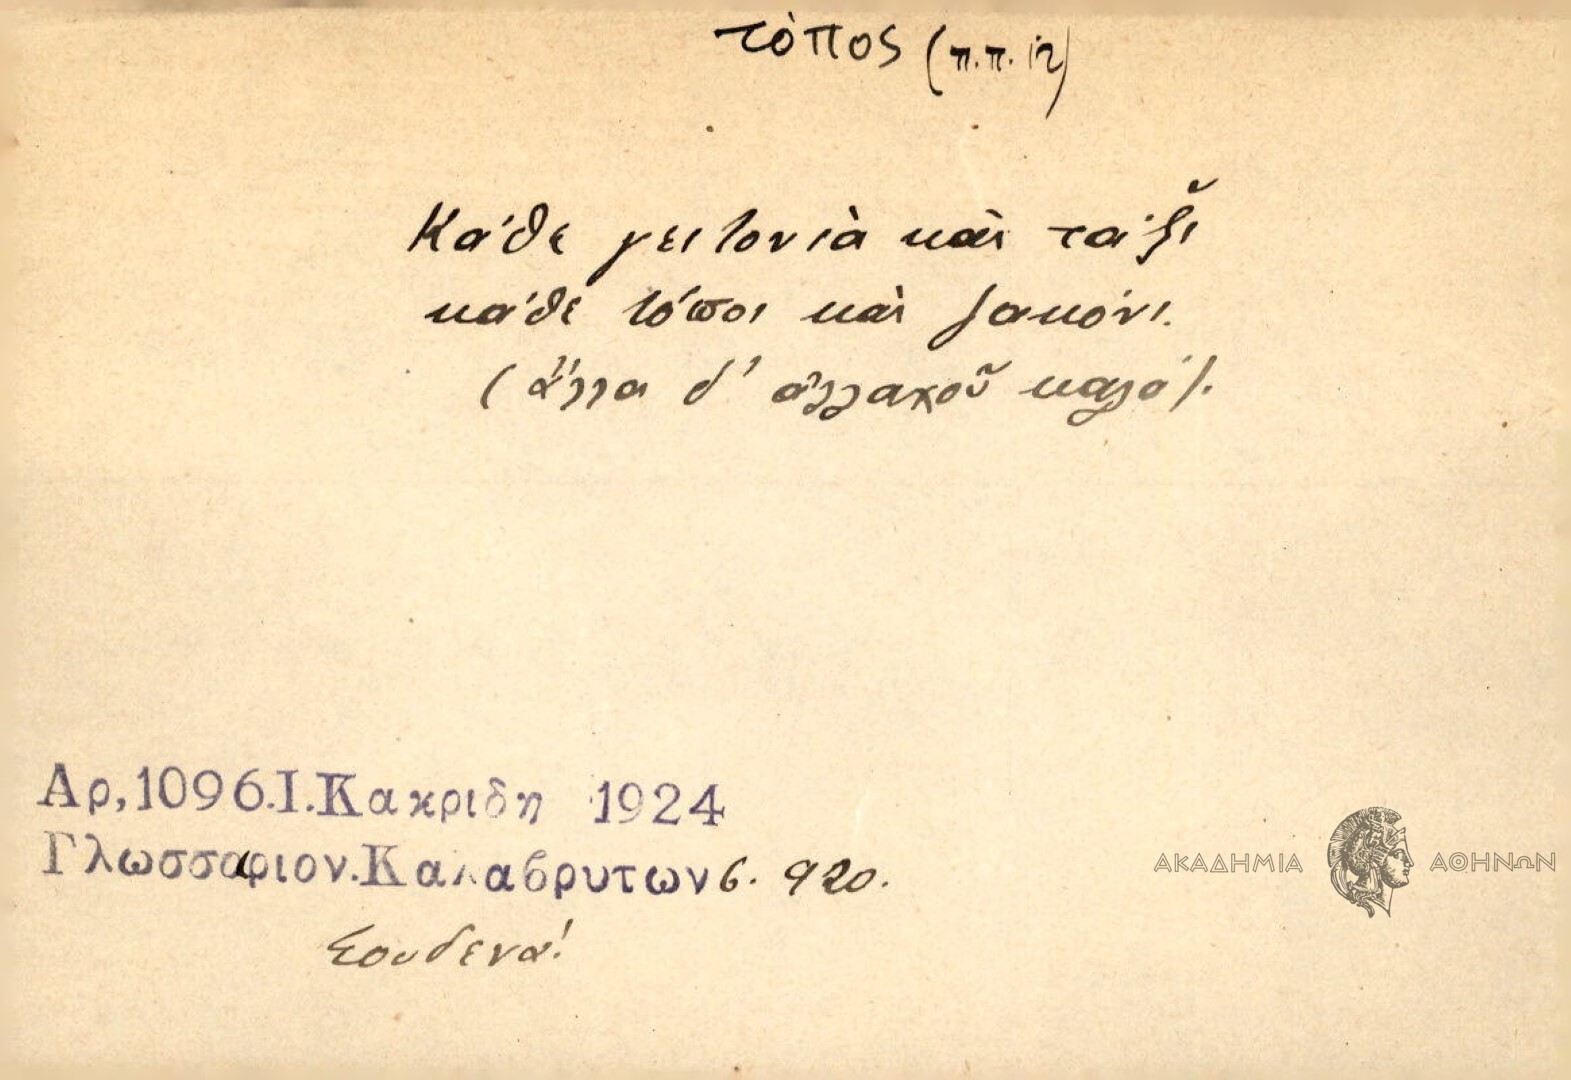 τόπος (π.π. 12)
Κάθε γειτονιὰ καὶ τάξι
κάθε τόποι καὶ ζακόνι.
(ἄλλα δ' ἀλλαχοῦ καλά).
Αρ,1096.Ι.Κακριδη 1924
Γλωσσαριον.Καλαβρυτων σ. 920.
Σουδενά!
ΑΚΑΔΗΜΙΑ ΑΘΗΝΩΝ